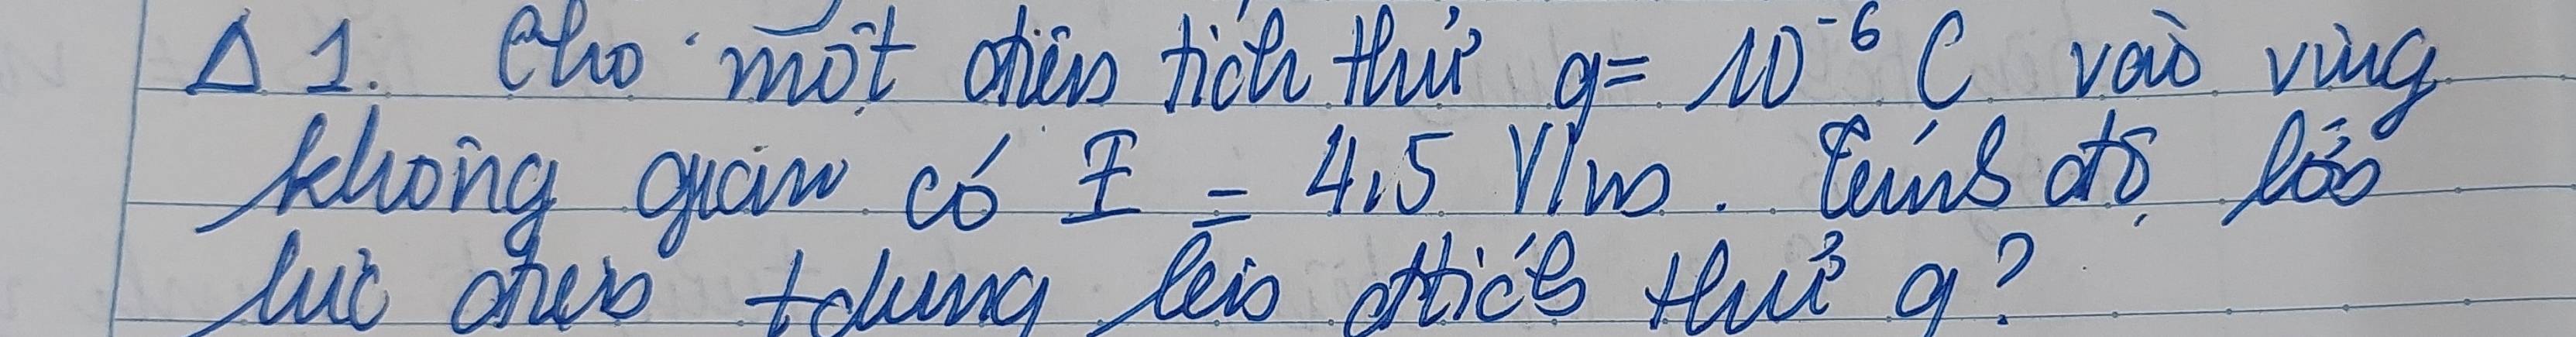 Δ 1. Cho một điện tích thử q = 10⁻⁶ C vào vùng
không gian có E = 4,5 V/m. Tính độ lớn
lực điện tdụng lên đtích thử q?